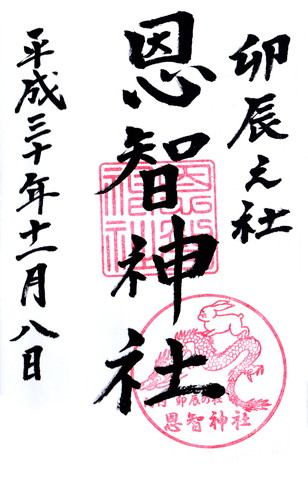 卯辰之社
恩智神社
平成三十年十一月八日
恩智神社
卯辰の社
恩智神社